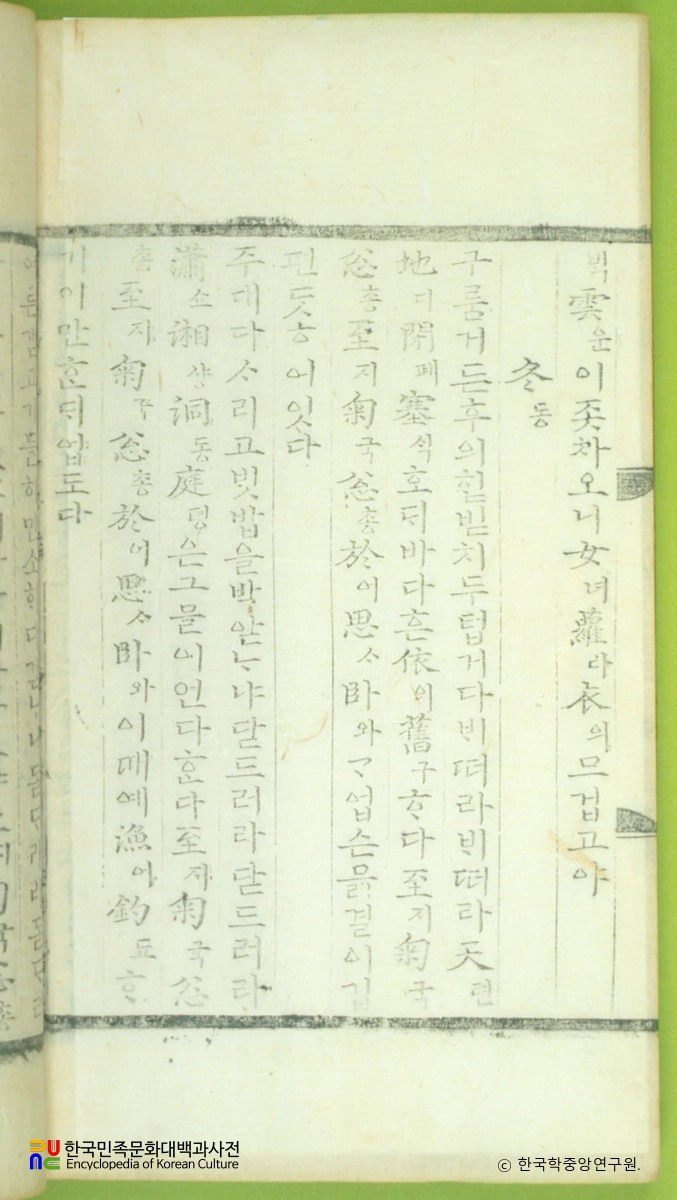 ᄇᆡᆨ雲운이좃차오니女녀蘿라衣의므겁고야
冬동
구룸거든후의ᄒᆡᆺ빋치두텁거다ᄇᆡᄠᅥ라ᄇᆡᄠᅥ라天텬
地디閉폐塞ᄉᆡᆨ호ᄃᆡ바다흔依의舊구ᄒᆞ다至지菊국
忩총至지菊국忩총於어思ᄉᆞ臥와ᄀᆞ업슨믉결이깁
편ᄃᆞᆺᄒᆞ여잇다
주대다ᄉᆞ리고ᄇᆡᆺ밥을박앋ᄂᆞ냐닫드러라닫드러라
瀟쇼湘샹洞동庭뎡은그믈이언다ᄒᆞᆫ다至지菊국忩
총至지菊국忩총於어思ᄉᆞ臥와이때예漁어釣됴ᄒᆞ
기이만ᄒᆞᆫᄃᆡ업도다
한국민족문화대백과사전
Encyclopedia of Korean Culture
ⓒ 한국학중앙연구원.